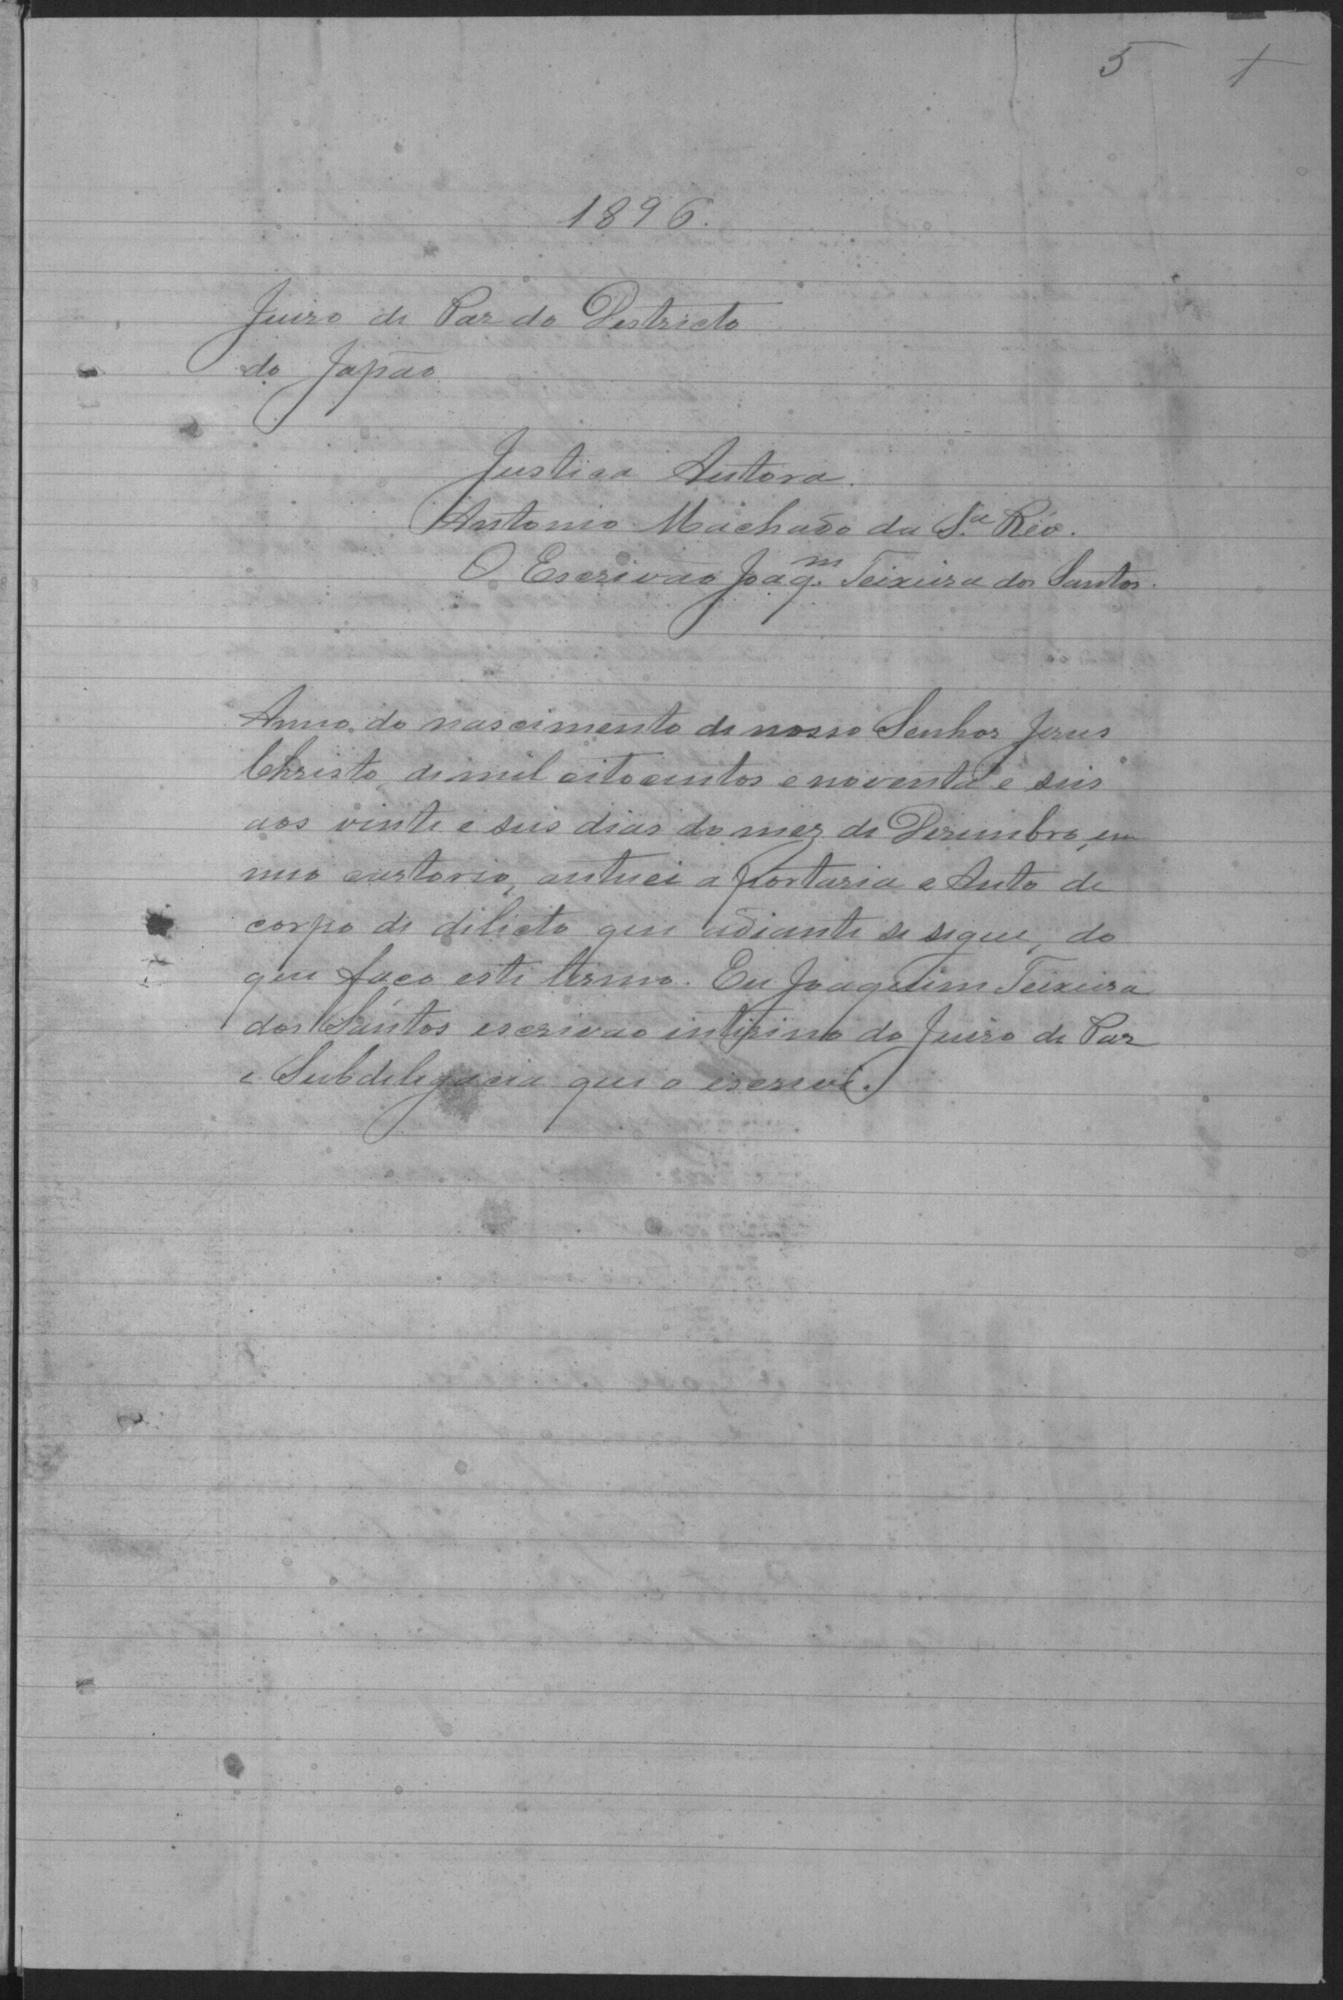 5 1
1896.
Juizo de Paz do Destricto
do Japão
Justiça Autora.
Antonio Machado da S.ª Réo.
O Escrivão Joaq.m Teixeira dos Santos.
Anno do nascimento de nosso Senhor Jesus
Christo, de mil oitocentos e noventa e seis
aos vinte e seis dias do mez de Dezembro, em
meo cartorio, autuei a portaria e Auto de
corpo de delicto que adiante se segue, do
que faço este termo. Eu Joaquim Teixeira
dos Santos escrivão interino do Juizo de Paz
e Subdelegacia que o escrevi.